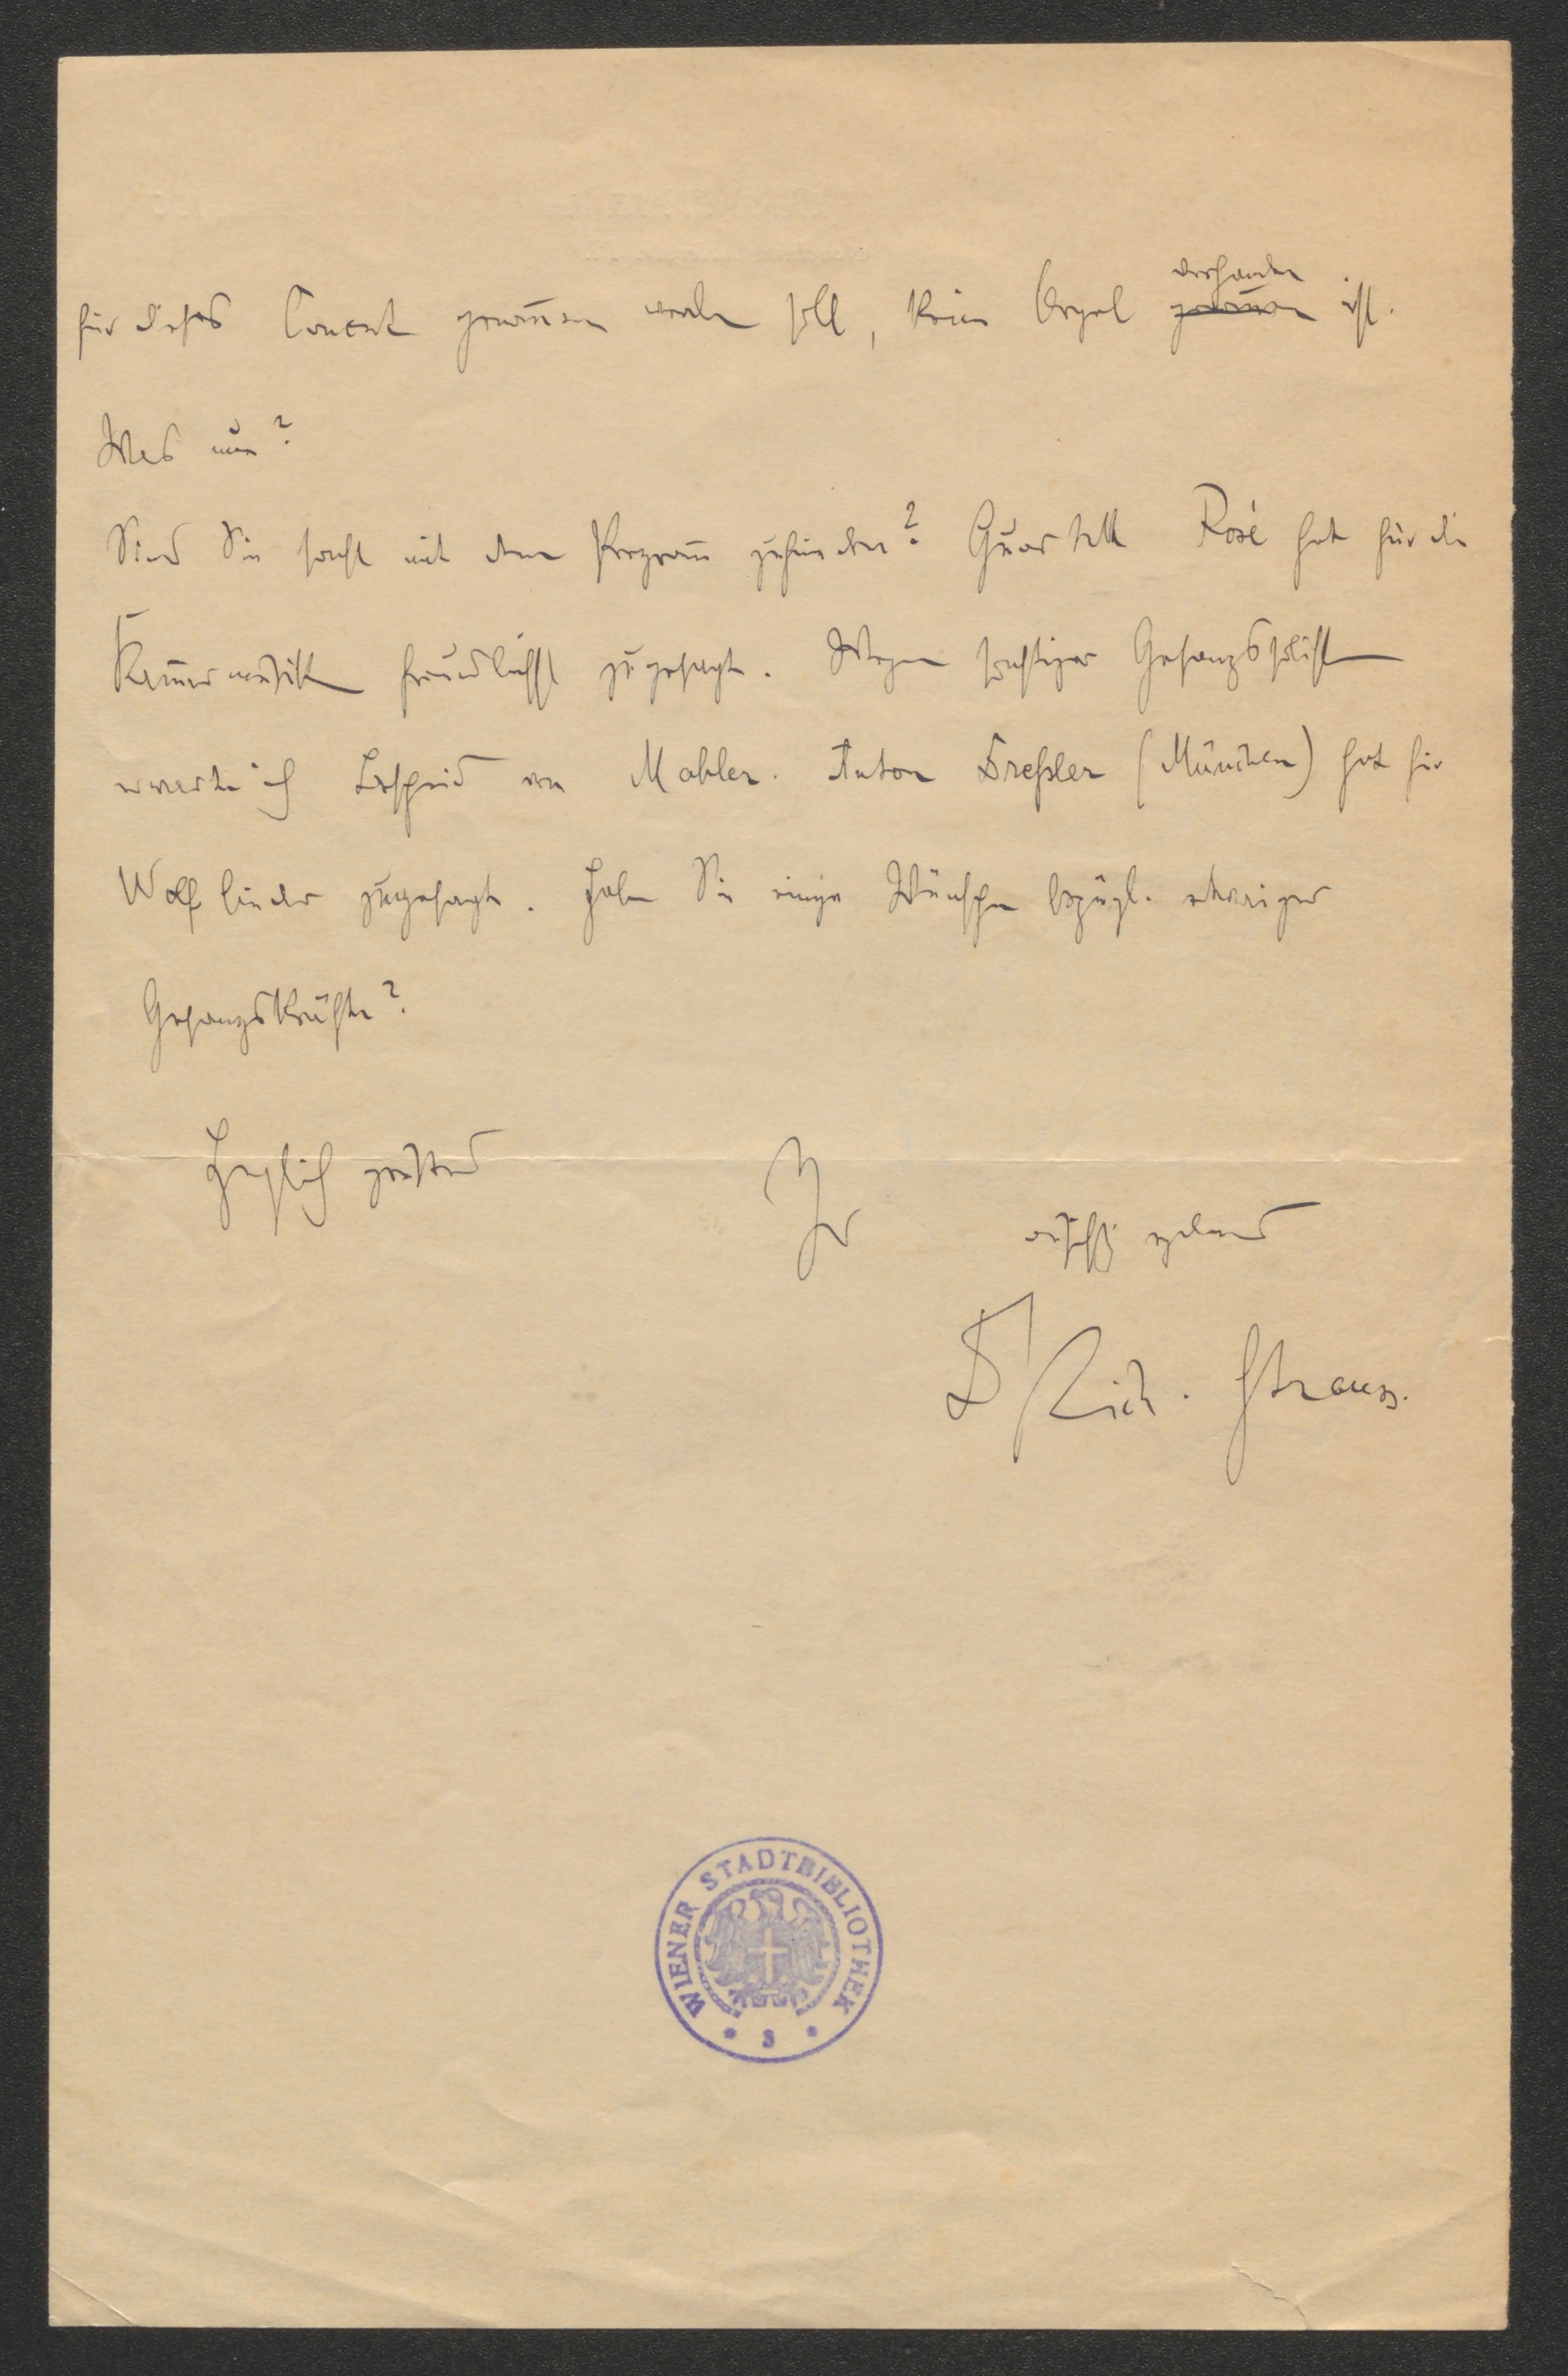 für dieses Concert gewonnen werden soll, keine Orgel vorhanden ~~gewonnen~~ ist.
Was nun?
Sind Sie sonst mit dem Programm zufrieden? Quartett Rosé hat für die
Kammermusik freundlichst zugesagt. Wegen sonstiger Gesangssolisten
erwarte ich Bescheid von Mahler. Anton Dreßler (München) hat für
Wolflieder zugesagt. Haben Sie einige Wünsche bezügl. etwaiger
Gesangskräfte?
Herzlich grüßend
Ihr
ergebener
Dr Rich. Strauss.
WIENER STADTBIBLIOTHEK